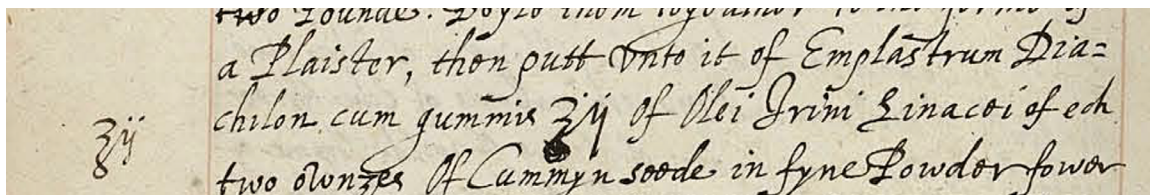 two Pounde. Boyle them together to the forme of
a Plaister, then putt vnto it of Emplastrum Dia=
chilon cum gummis ℥ij of Olei Irini Linacei of ech
℥ij
two ownzes of Cummyn seede in fyne Powder fower